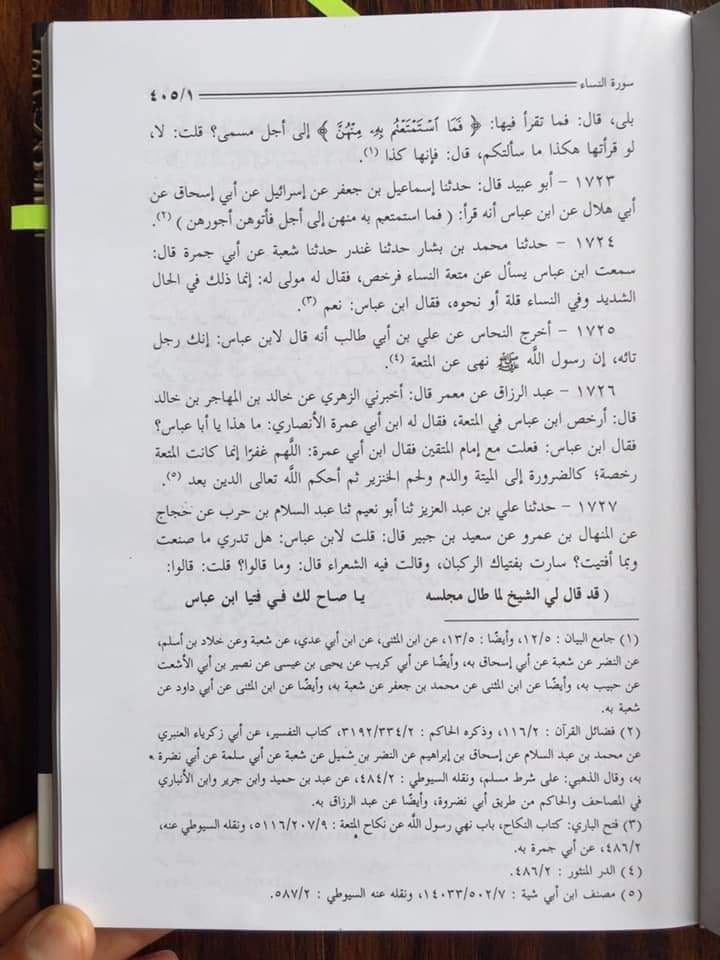 سورة النساء
٤٠٥/١
بلى، قال: فما تقرأ فيها: ﴿ فَمَا اسْتَمْتَعْتُم بِهِ مِنْهُنَّ ﴾ إلى أجل مسمى؟ قلت: لا،
لو قرأتها هكذا ما سألتكم، قال: فإنها كذا (١).
١٧٢٣ - أبو عبيد قال: حدثنا إسماعيل بن جعفر عن إسرائيل عن أبي إسحاق عن
أبي هلال عن ابن عباس أنه قرأ: ( فما استمتعم به منهن إلى أجل فأتوهن أجورهن ) (٢).
١٧٢٤ - حدثنا محمد بن بشار حدثنا غندر حدثنا شعبة عن أبي جمرة قال:
سمعت ابن عباس يسأل عن متعة النساء فرخص، فقال له مولى له: إنما ذلك في الحال
الشديد وفي النساء قلة أو نحوه، فقال ابن عباس: نعم (٣).
١٧٢٥ - أخرج النحاس عن علي بن أبي طالب أنه قال لابن عباس: إنك رجل
تائه، إن رسول اللَّه ﷺ نهى عن المتعة (٤).
١٧٢٦ - عبد الرزاق عن معمر قال: أخبرني الزهري عن خالد بن المهاجر بن خالد
قال: أرخص ابن عباس في المتعة، فقال له ابن أبي عمرة الأنصاري: ما هذا يا أبا عباس؟
فقال ابن عباس: فعلت مع إمام المتقين فقال ابن أبي عمرة: اللَّهم غفرًا إنما كانت المتعة
رخصة؛ كالضرورة إلى الميتة والدم ولحم الخنزير ثم أحكم اللَّه تعالى الدين بعد (٥).
١٧٢٧ - حدثنا علي بن عبد العزيز ثنا أبو نعيم ثنا عبد السلام بن حرب عن حجاج
عن المنهال بن عمرو عن سعيد بن جبير قال: قلت لابن عباس: هل تدري ما صنعت
وبما أفتيت؟ سارت بفتياك الركبان، وقالت فيه الشعراء قال: وما قالوا؟ قلت: قالوا:
( قد قال لي الشيخ لما طال مجلسه يا صاح لك في فتيا ابن عباس
(١) جامع البيان : ١٢/٥، وأيضًا : ١٣/٥، عن ابن المثنى، عن ابن أبي عدي، عن شعبة وعن خلاد بن أسلم،
عن النضر عن شعبة عن أبي إسحاق به، وأيضًا عن أبي كريب عن يحيى بن عيسى عن نصير بن أبي الأشعث
عن حبيب به، وأيضًا عن ابن المثنى عن محمد بن جعفر عن شعبة به، وأيضًا عن ابن المثنى عن أبي داود عن
شعبة به.
(٢) فضائل القرآن : ١١٦/٢، وذكره الحاكم : ٣١٩٢/٣٣٤/٢، كتاب التفسير، عن أبي زكرياء العنبري
عن محمد بن عبد السلام عن إسحاق بن إبراهيم عن النضر بن شميل عن شعبة عن أبي سلمة عن أبي نضرة
به، وقال الذهبي: على شرط مسلم، ونقله السيوطي : ٤٨٤/٢، عن عبد بن حميد وابن جرير وابن الأنباري
في المصاحف والحاكم من طريق أبي نضروة، وأيضًا عن عبد الرزاق به.
(٣) فتح الباري: كتاب النكاح، باب نهي رسول اللَّه عن نكاح المتعة : ٥١١٦/٢٠٧/٩، ونقله السيوطي عنه،
٤٨٦/٢، عن أبي جمرة به.
(٤) الدر المنثور : ٤٨٦/٢.
(٥) مصنف ابن أبي شيبة : ١٤٠٣٣/٥٠٢/٧، ونقله عنه السيوطي : ٥٨٧/٢.